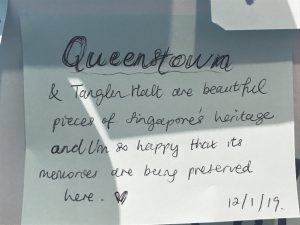 Queenstown
& Tanglin Halt are beautiful
pieces of Singapore's heritage
and I'm so happy that its
memories are being preserved
here. ♥
12/1/19.